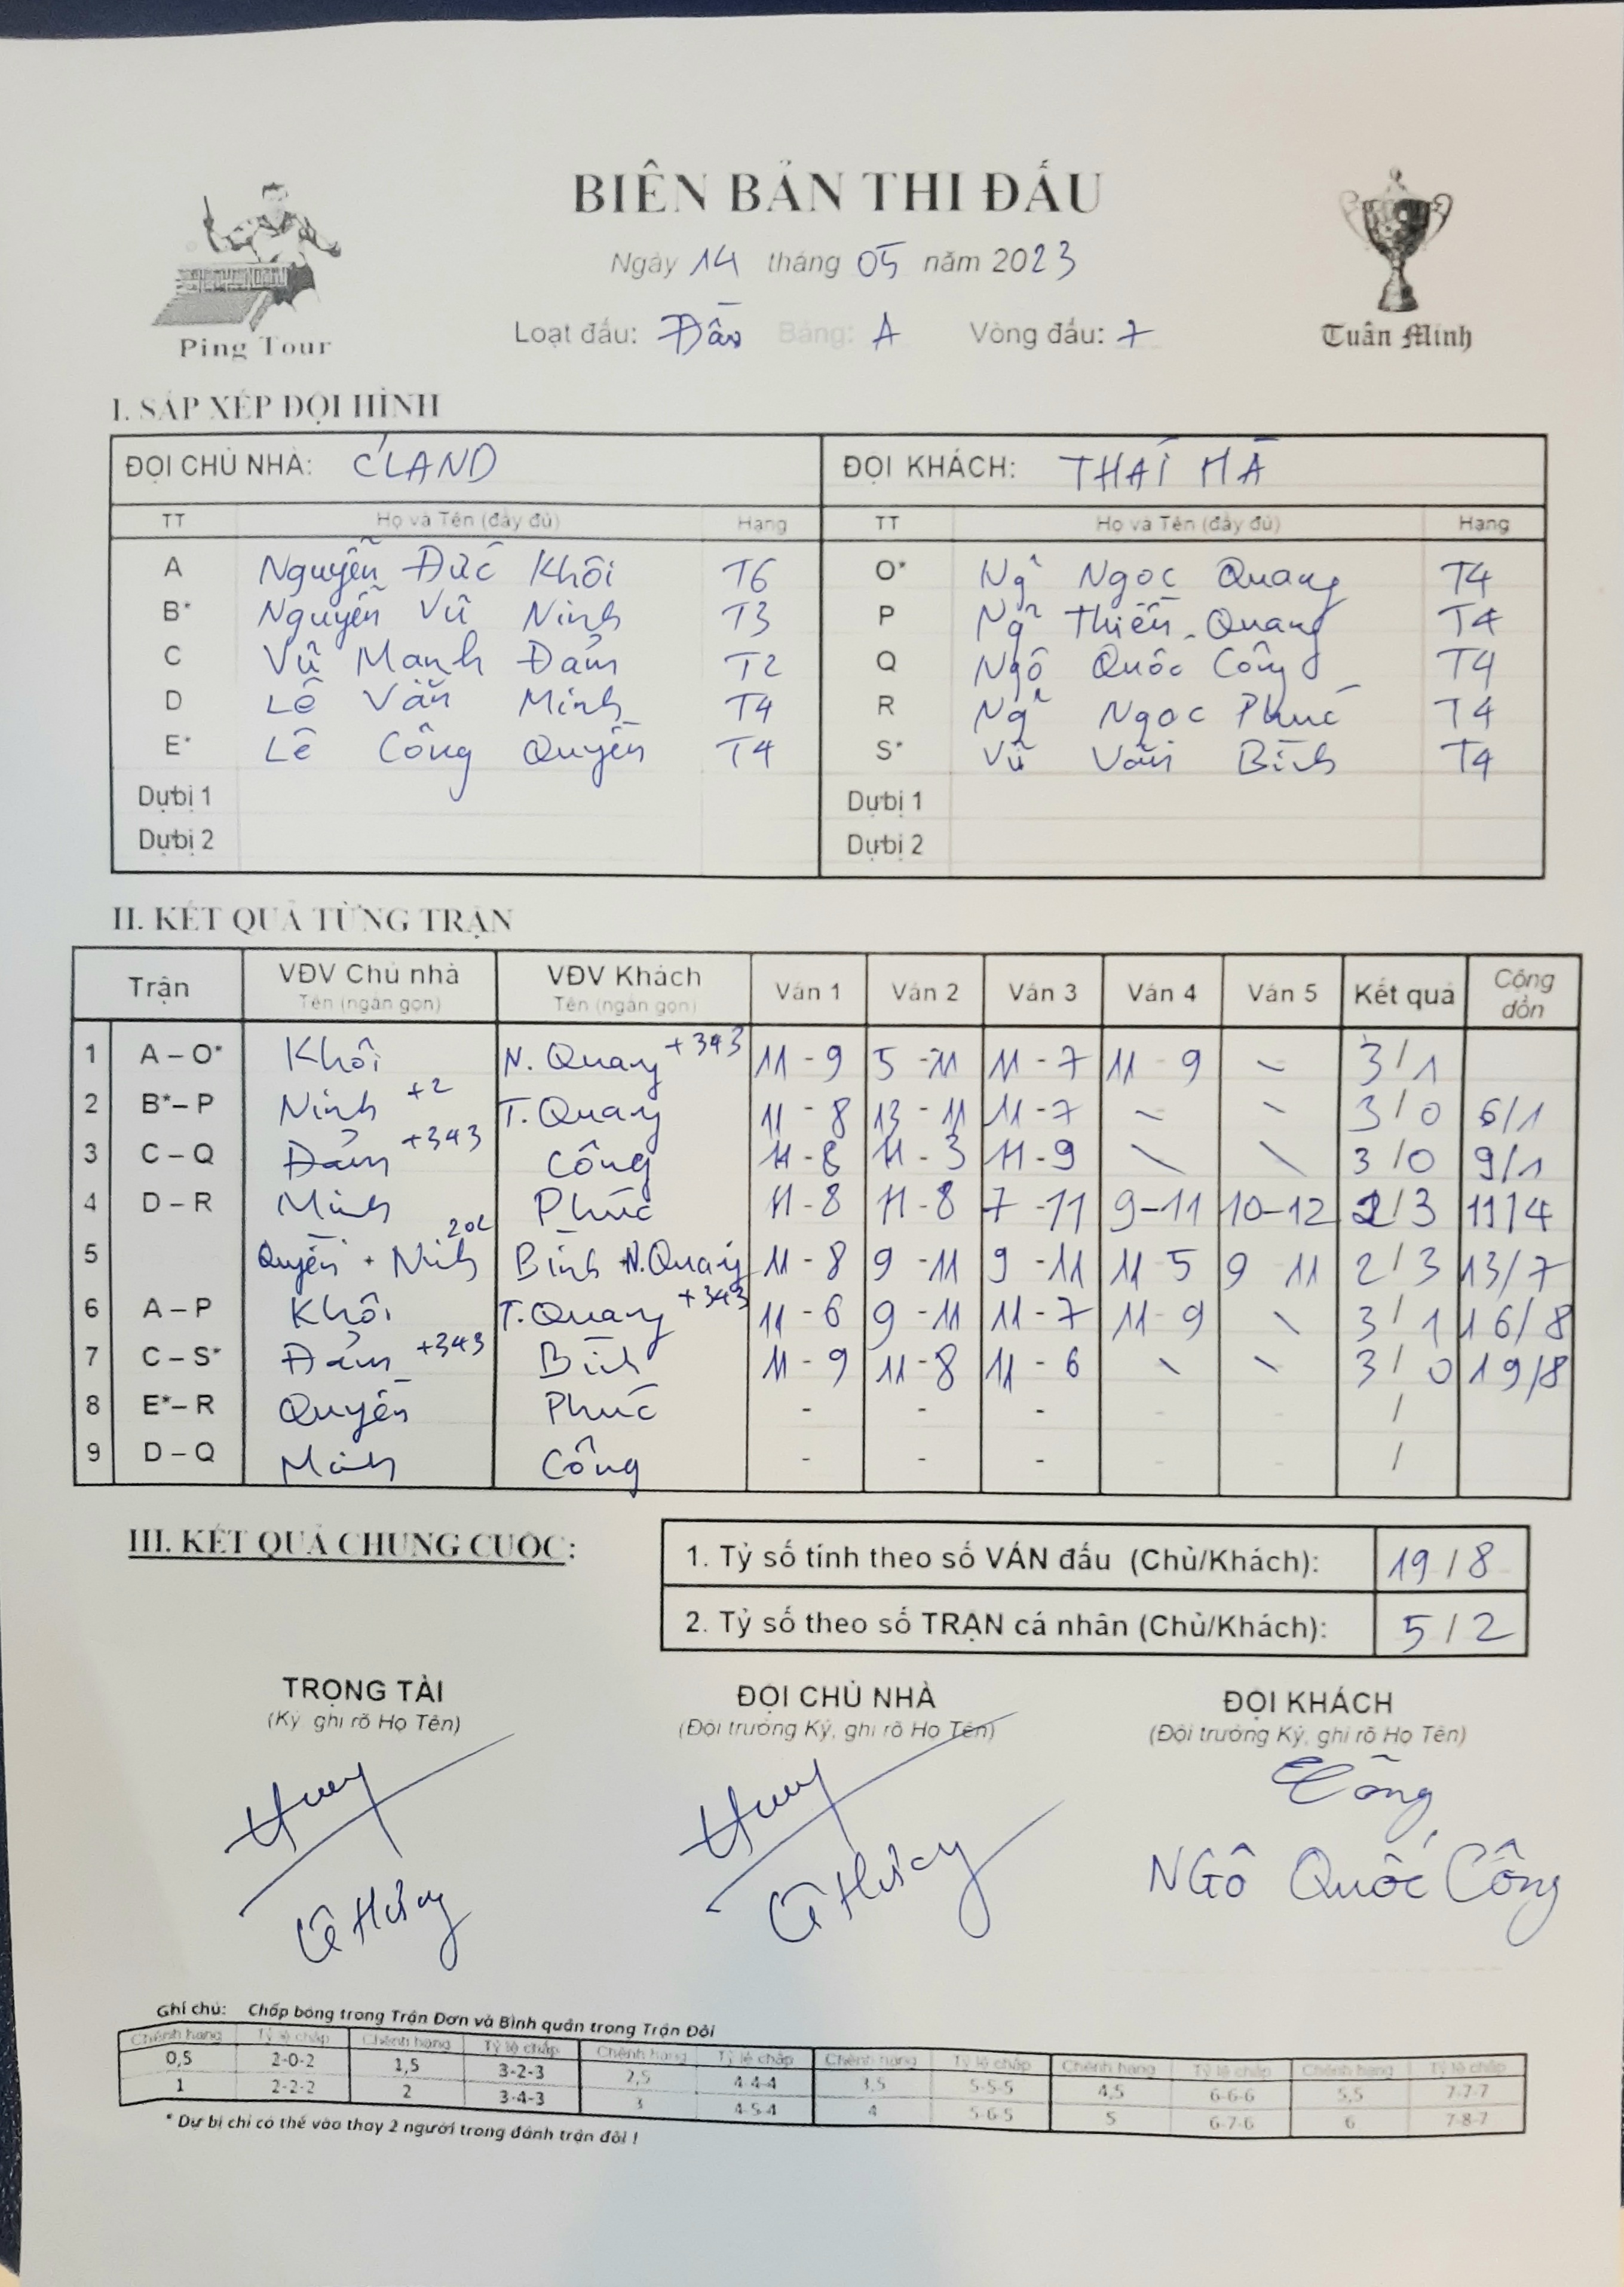 BIÊN BẢN THI ĐẤU
Ngày 14 tháng 05 năm 2023
Ping Tour
Loạt đấu: Bảng: A Vòng đấu: 7
Tuấn Minh
I. SẮP XẾP ĐỘI HÌNH
ĐỘI CHỦ NHÀ: C'LAND ĐỘI KHÁCH: THÁI HÀ
TT Họ và Tên (đầy đủ) Hạng TT Họ và Tên (đầy đủ) Hạng
A Nguyễn Đức Khôi T6 O* Ng~ Ngọc Quang T4
B* Nguyễn Vũ Ninh T3 P Ng~ Thiên Quang T4
C Vũ Mạnh Đảm T2 Q Ngô Quốc Công T4
D Lê Văn Minh T4 R Ng~ Ngọc Phúc T4
E* Lê Công Quyền T4 S* Vũ Văn Bình T4
Dự bị 1 Dự bị 1
Dự bị 2 Dự bị 2
II. KẾT QUẢ TỪNG TRẬN
Trận VĐV Chủ nhà Tên (ngắn gọn) VĐV Khách Tên (ngắn gọn) Ván 1 Ván 2 Ván 3 Ván 4 Ván 5 Kết quả Cộng dồn
1 A – O* Khôi N. Quang +343 11 - 9 5 - 11 11 - 7 11 - 9 - 3 / 1
2 B* – P Ninh +2 T. Quang 11 - 8 13 - 11 11 - 7 - - 3 / 0 6/1
3 C – Q Đảm +343 Công 11 - 8 11 - 3 11 - 9 \ \ 3 / 0 9/1
4 D – R Minh Phúc 11 - 8 11 - 8 7 - 11 9 - 11 10 - 12 2 / 3 11/4
5 Quyền + Ninh 202 Bình + N. Quang 11 - 8 9 - 11 9 - 11 11 - 5 9 - 11 2 / 3 13/7
6 A – P Khôi T. Quang +343 11 - 6 9 - 11 11 - 7 11 - 9 \ 3 / 1 16/8
7 C – S* Đảm +343 Bình 11 - 9 11 - 8 11 - 6 \ \ 3 / 0 19/8
8 E* – R Quyền Phúc - - - - - /
9 D – Q Minh Công - - - - - /
III. KẾT QUẢ CHUNG CUỘC:
1. Tỷ số tính theo số VÁN đấu (Chủ/Khách): 19 / 8
2. Tỷ số theo số TRẬN cá nhân (Chủ/Khách): 5 / 2
TRỌNG TÀI ĐỘI CHỦ NHÀ ĐỘI KHÁCH
(Ký ghi rõ Họ Tên) (Đội trưởng Ký, ghi rõ Họ Tên) (Đội trưởng Ký, ghi rõ Họ Tên)
Công
NGÔ Quốc Công
Ghi chú: Chấp bóng trong Trận Đơn và Bình quân trong Trận Đôi
Chênh hạng Tỷ lệ chấp Chênh hạng Tỷ lệ chấp Chênh hạng Tỷ lệ chấp Chênh hạng Tỷ lệ chấp Chênh hạng Tỷ lệ chấp Chênh hạng Tỷ lệ chấp
0,5 2-0-2 1,5 3-2-3 2,5 4-4-4 3,5 5-5-5 4,5 6-6-6 5,5 7-7-7
1 2-2-2 2 3-4-3 3 4-5-4 4 5-6-5 5 6-7-6 6 7-8-7
* Dự bị chỉ có thể vào thay 2 người trong đánh trận đôi !